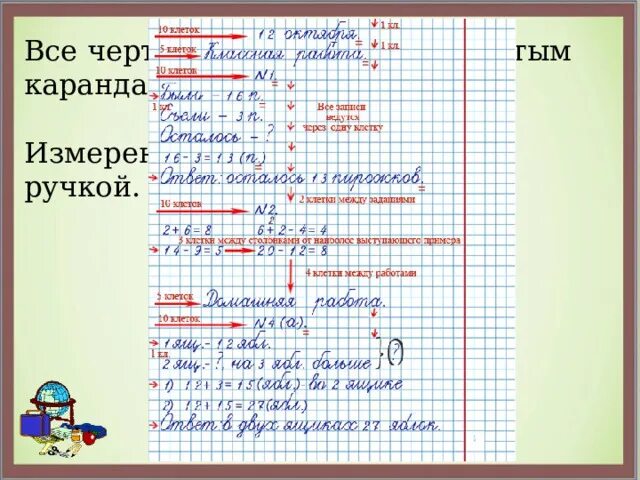 Все черт
тым
каранда
Измерен
ручкой.
10 клеток
12 октября.
1 кл.
5 клеток
Классная работа.
1 кл.
10 клеток
N1.
Были - 16 п.
1 кл.
Съели - 3 п.
Все записи
ведутся
через одну клетку
Осталось - ?
16 - 3 = 13 (п.)
Ответ: осталось 13 пирожков.
2 клетки между заданиями
10 клетов
N2.
2
2 + 6 = 8 6 + 2 - 4 = 4
3 клетки между столбиками от наиболее выступающего примера
14 - 9 = 5 20 - 12 = 8
4 клетки между работами
5 клеток
Домашняя работа.
10 клеток
N4 (а).
1 ящ. - 12 ябл.
1 кл.
2 ящ. - ?, на 3 ябл. больше } ?
1) 12 + 3 = 15 (ябл.) - во 2 ящике
2) 12 + 15 = 27 (ябл.)
Ответ: в двух ящиках 27 яблок.